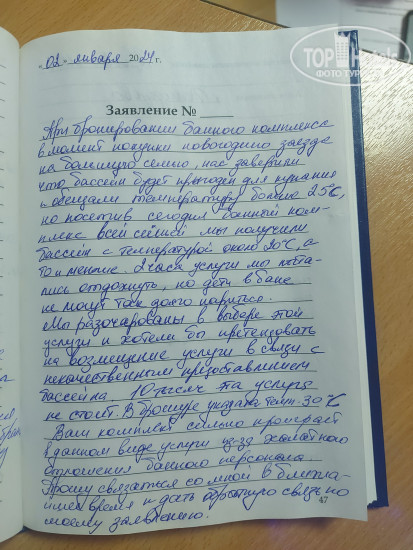 TOP Hotels
ФОТО ТУРИ
«02» января 2024 г.
Заявление №
При бронировании банного комплекса
в момент покупки новогоднего заезда
на большую семью, нас заверили
что бассейн будет пригоден для купания
и обещали температуру больше 25°С,
но посетив сегодня банный ком-
плекс всей семьей мы получили
бассейн с температурой около 20°С, а
то и меньше. 2 часа услуги мы пыта-
лись отдохнуть, но дети в бане
не могут так долго париться.
Мы разочарованы в выборе этой
услуги и хотели бы претендовать
на возмещение услуги в связи с
некачественным предоставлением
бассейна. 10 тысяч эта услуга
не стоит. В брошюре указана темп. 30°С
Ваш комплекс сильно проиграет
в данном виде услуги из-за халатного
отношения банного персонала.
Прошу связаться со мной в ближай-
шее время и дать обратную связь по
моему заявлению.
47